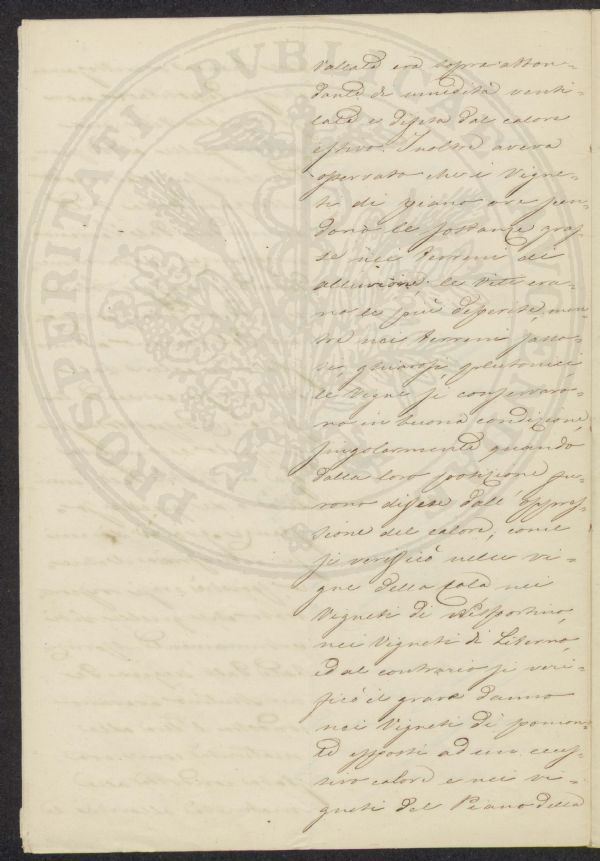 vallata era sopra abbon=
dante di umidità venti=
lata e difesa dal calore
estivo. Inoltre aveva
osservato che i Vigne=
ti di piano ove
le sostanze gras=
se nei terreni di
alluvione le viti era=
no le più deperite, men=
tre nei terreni sasso=
si, ghiarosi
le vigne si conservaro=
no in buona condizione,
singolarmente quando
dalla loro posizione fu=
rono difese dall'oppres=
sione del calore, come
si verificò nelle vi=
gne della Cala nei
Vigneti di
nei Vigneti di Literno,
ed al contrario si veri=
ficò il grave danno
nei Vigneti di pomon=
te esposti ad un ecces=
sivo calore e nei vi=
gneti del Piano della
PROSPERITATI PVBLICAE